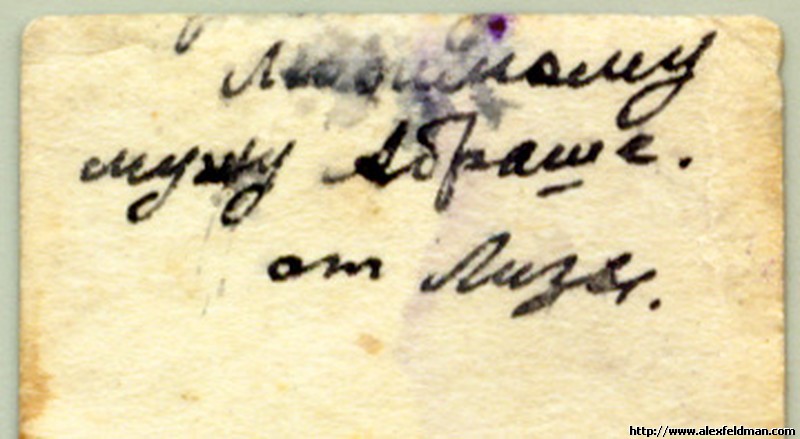 Любимому
мужу Абраше.
от Лизы.
http://www.alexfeldman.com